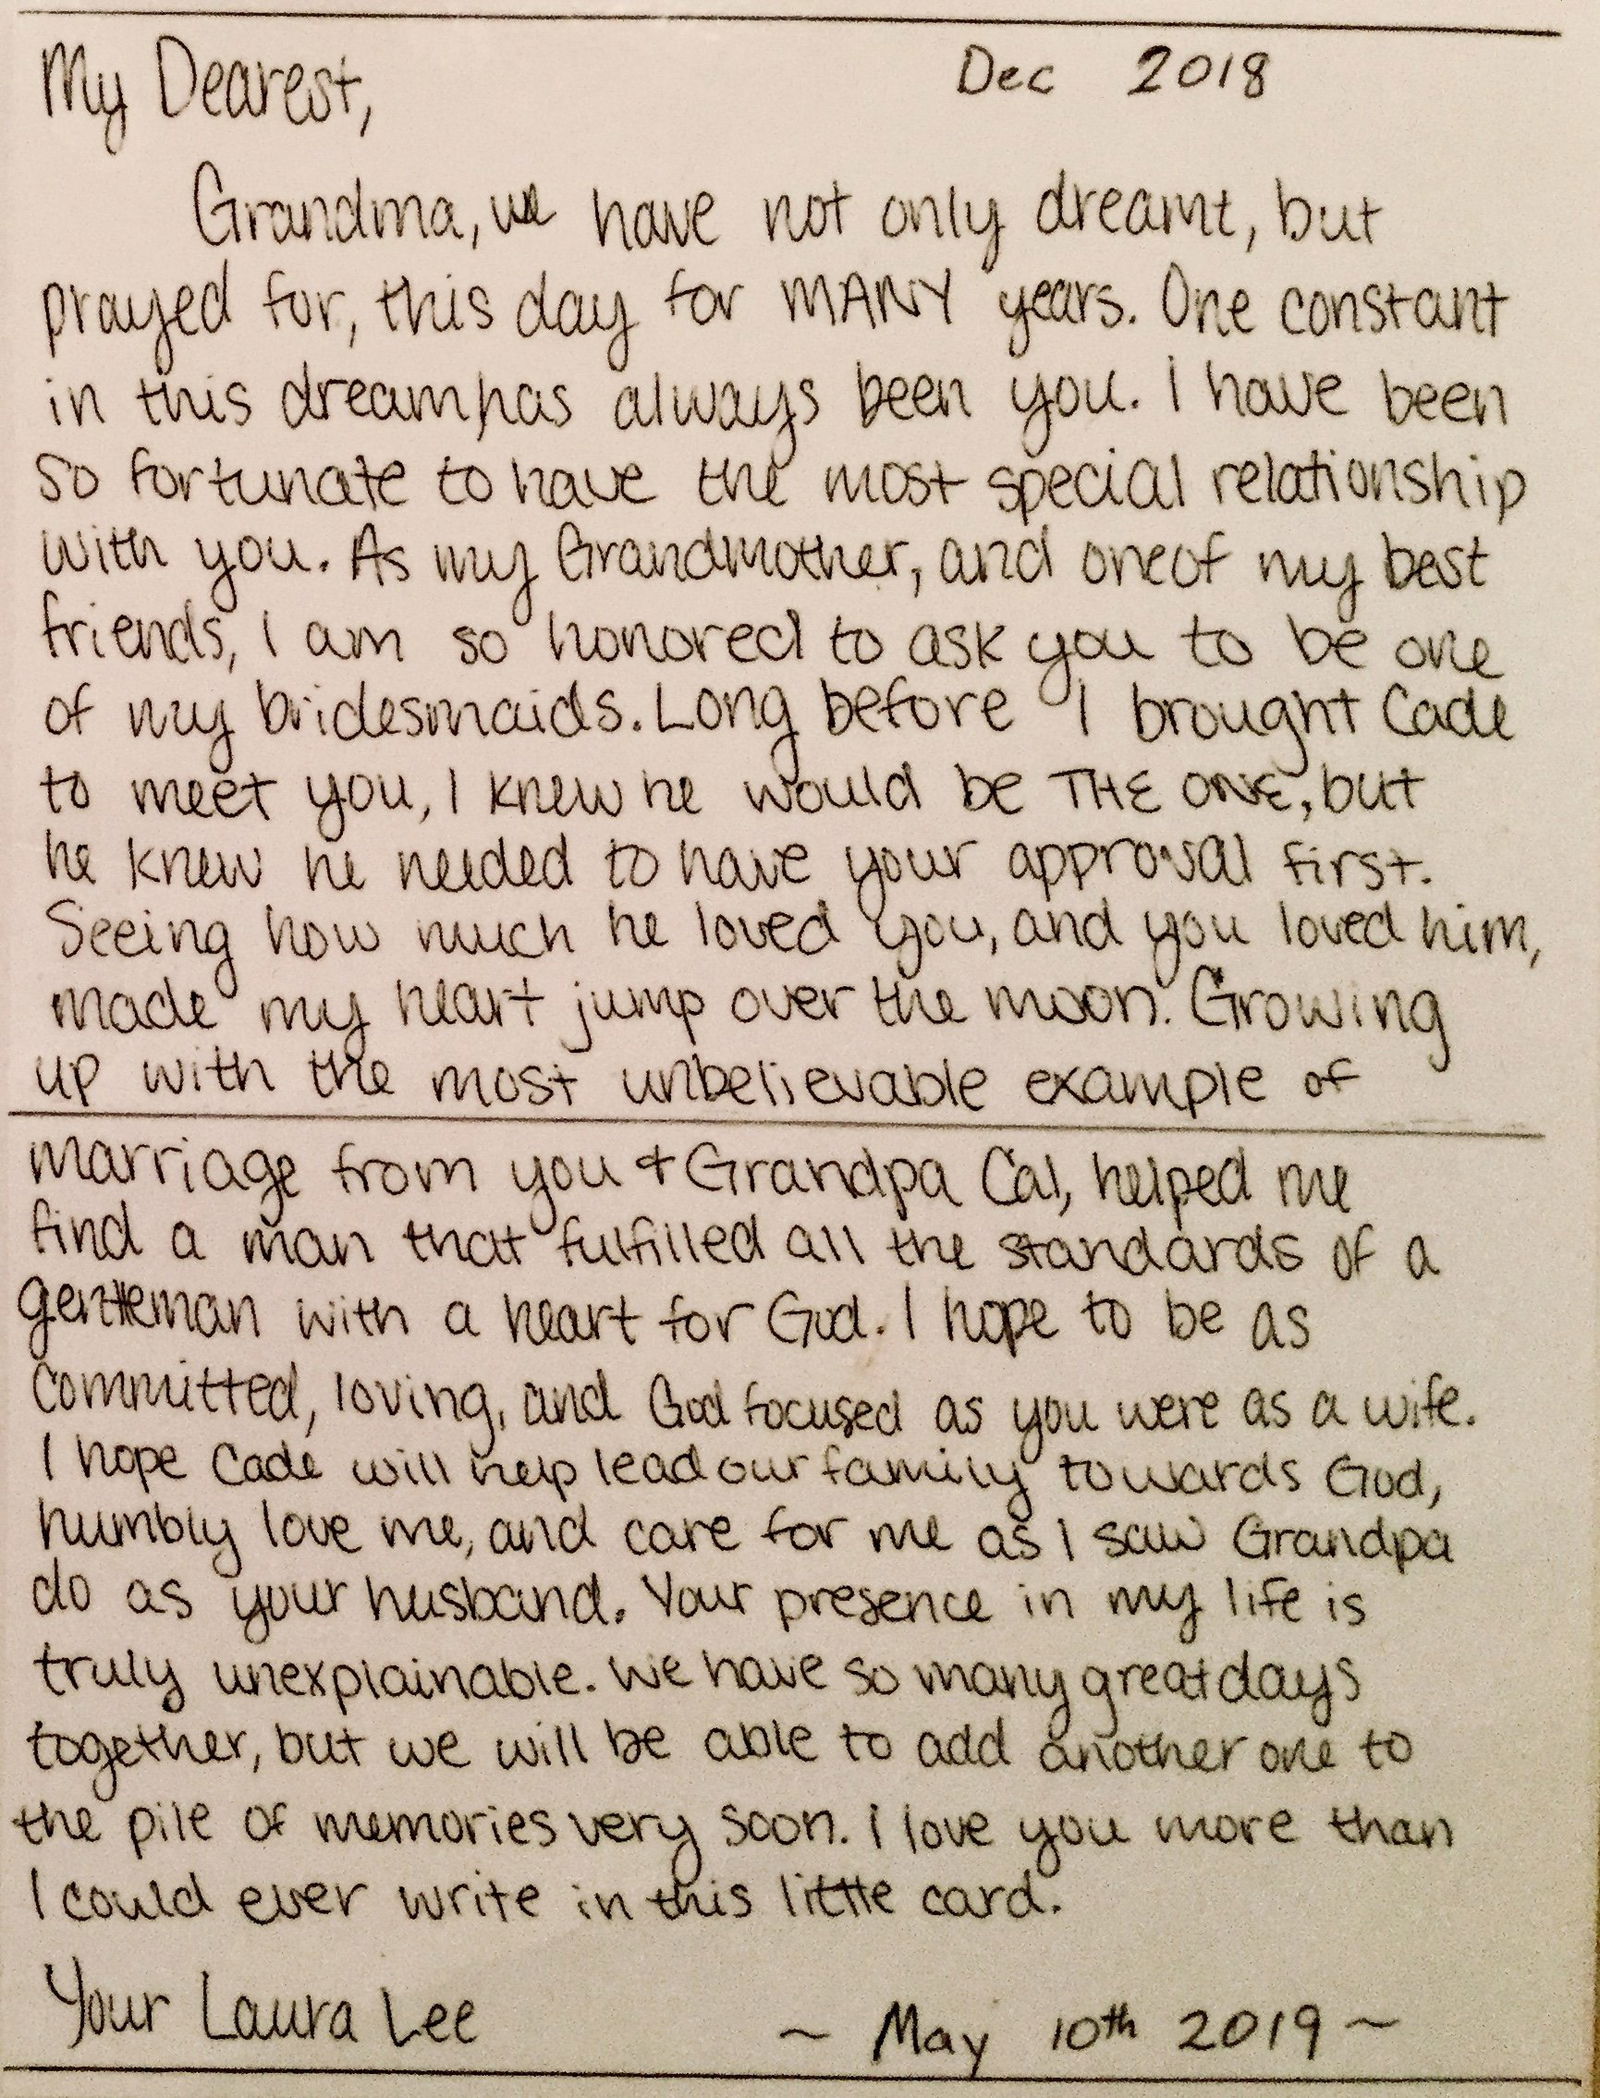 My Dearest, Dec 2018
Grandma, we have not only dreamt, but
prayed for, this day for MANY years. One constant
in this dream, has always been you. I have been
so fortunate to have the most special relationship
with you. As my Grandmother, and one of my best
friends, I am so honored to ask you to be one
of my bridesmaids. Long before I brought Cade
to meet you, I knew he would be THE ONE, but
he knew he needed to have your approval first.
Seeing how much he loved you, and you loved him,
made my heart jump over the moon. Growing
up with the most unbelievable example of
marriage from you + Grandpa Cal, helped me
find a man that fulfilled all the standards of a
gentleman with a heart for God. I hope to be as
committed, loving, and God focused as you were as a wife.
I hope Cade will help lead our family towards God,
humbly love me, and care for me as I saw Grandpa
do as your husband. Your presence in my life is
truly unexplainable. We have so many great days
together, but we will be able to add another one to
the pile of memories very soon. I love you more than
I could ever write in this little card.
Your Laura Lee ~ May 10th 2019 ~